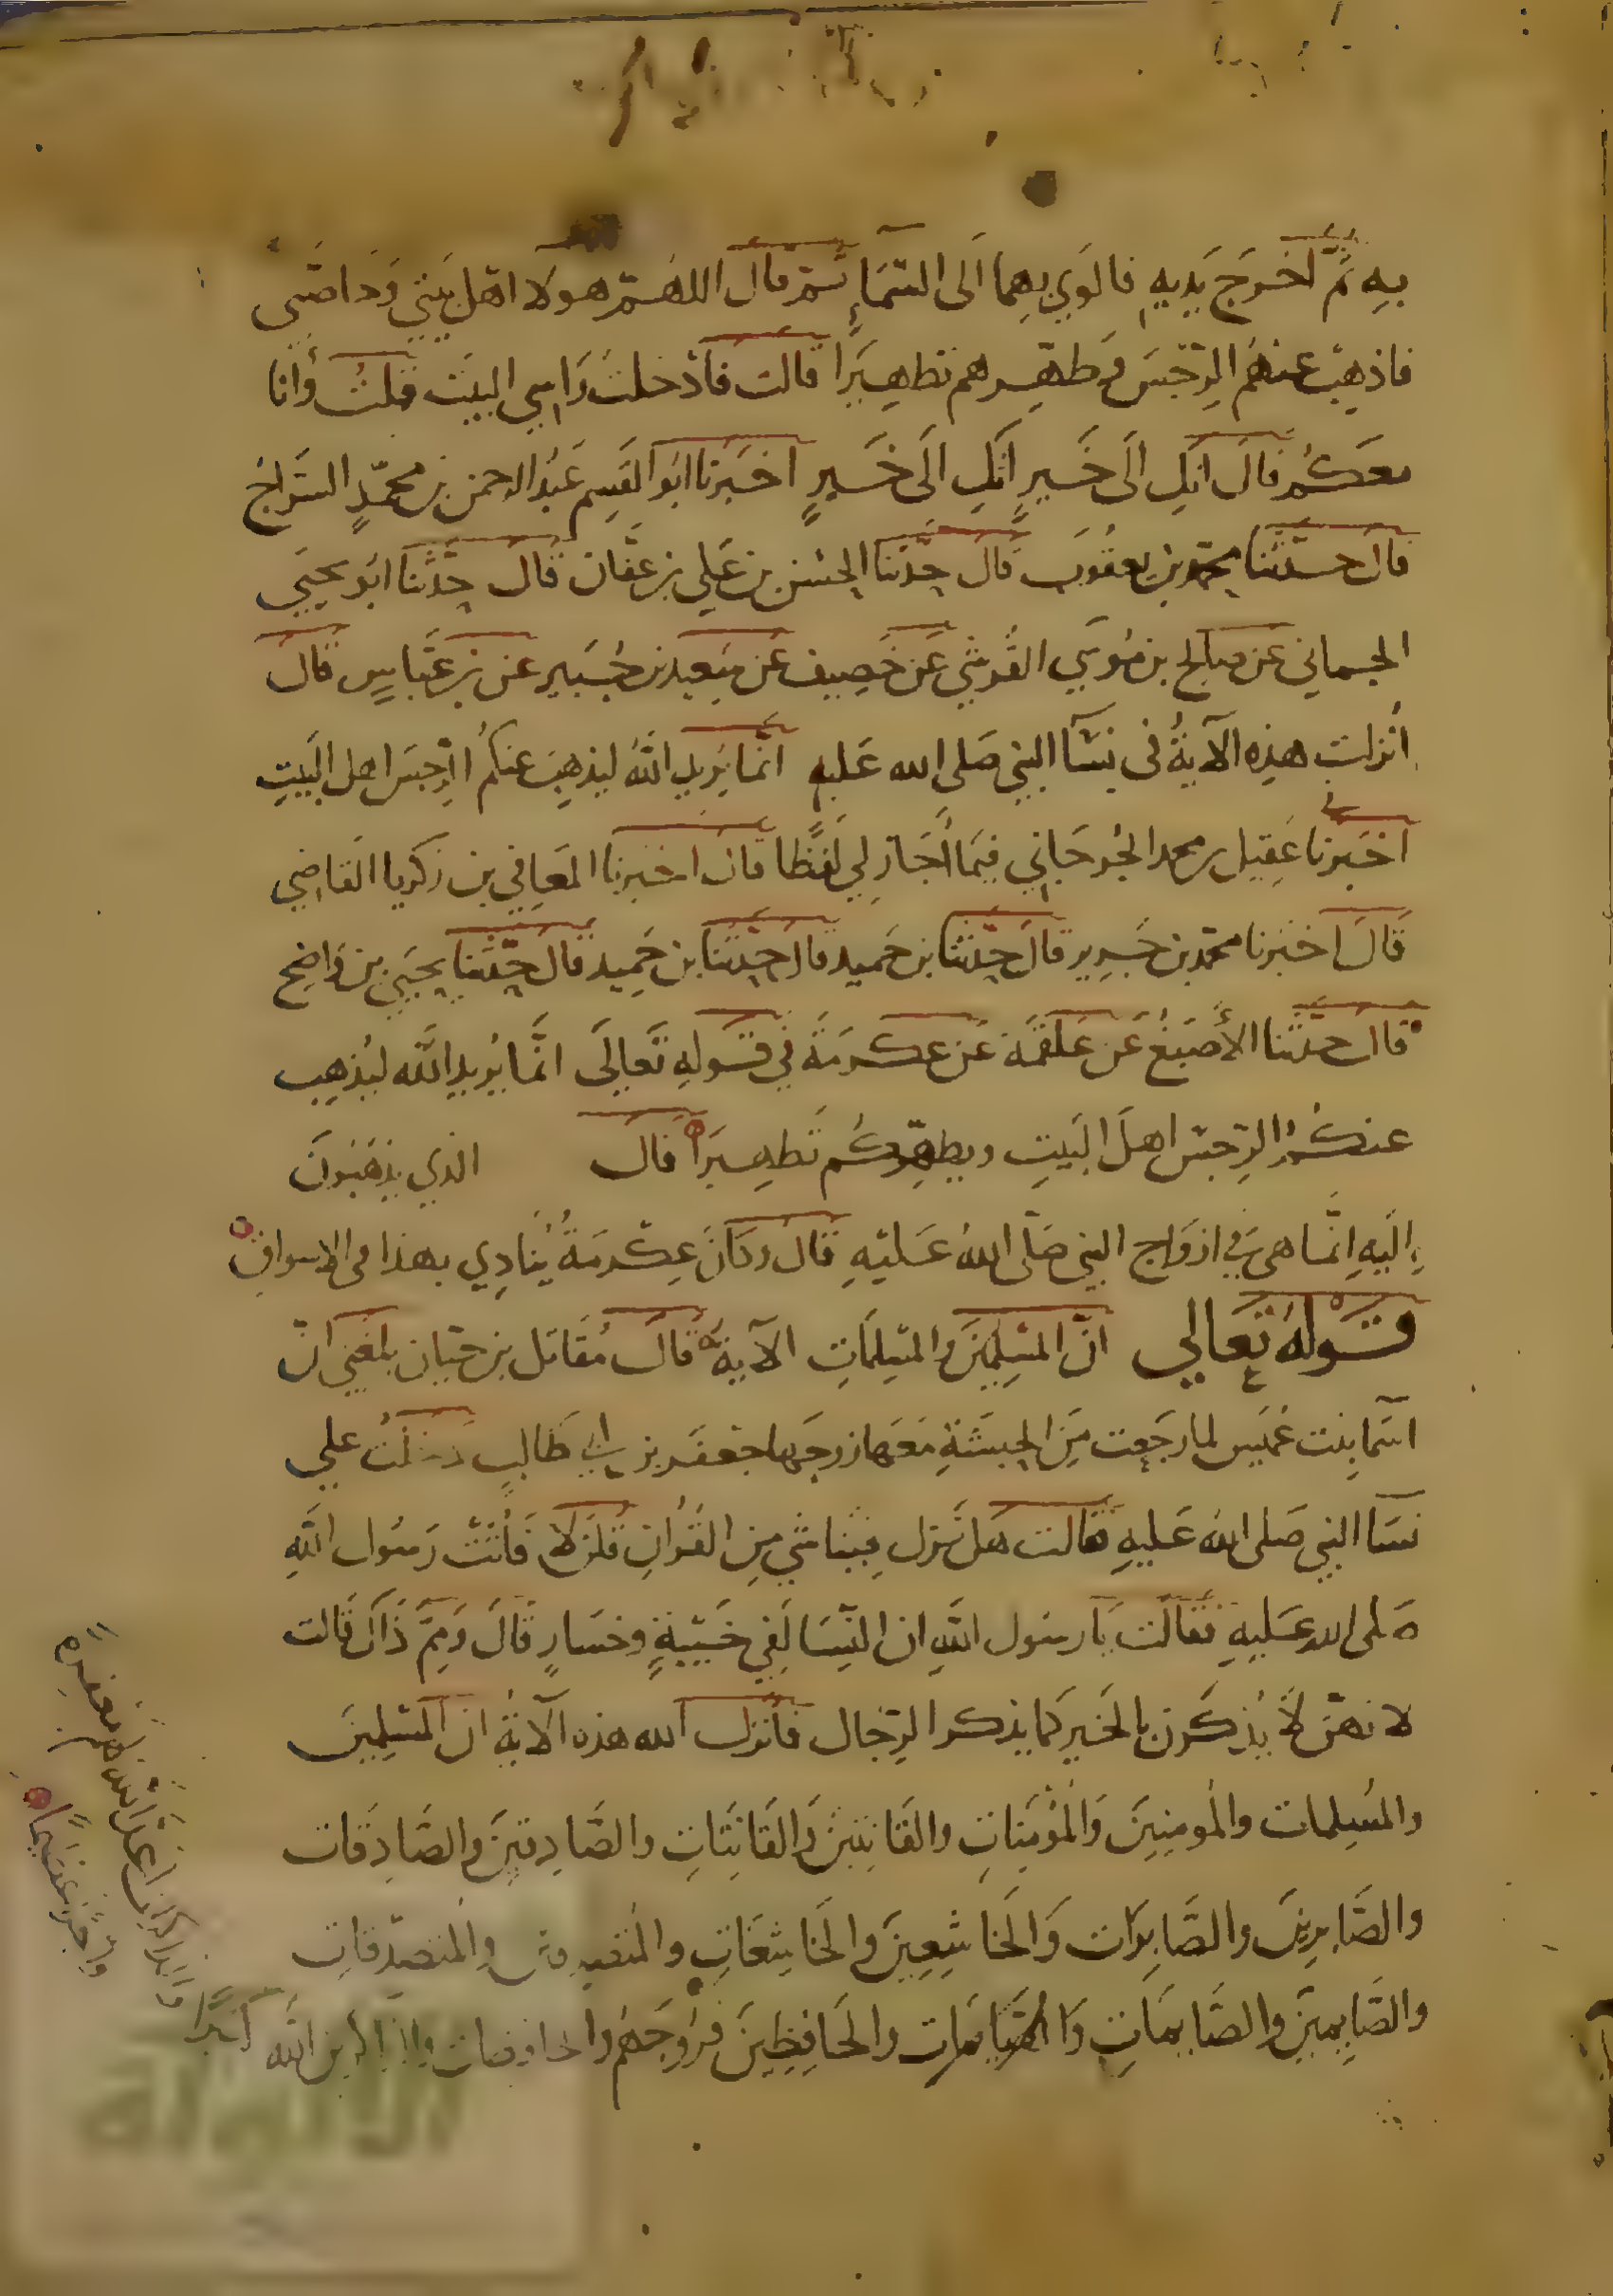 بِهِ ثُمَّ اَخرَجَ يَدَيهِ فالوَي بهِما اَلى السَّمَاءِ ثم قال اللهم هولا اهل بيتي وَخاصَّتي
فاذهِبْ عنهُم الرِّجْسَ وَطهِّرهم تطهِيرًا قالت فاَدْخلتُ رَاسِي البيتَ فقلتُ وَانا
معَكُم قالَ انكِ اَلَى خَيرٍ انكِ الَى خَيرٍ اخبَرنا ابُو القسِم عَبْد الرحمن بن محمّدٍ السَّراجُ
قال حدَّثنا محمّد بن يعقُوب قال حدّثنا الحسَن بن عَلي بن عَفّان قال حدَّثنا ابُو يحيَي
الحماني عَن صالح بن مُوسَي القُرشي عَن خَصِيف عَن سَعِيد بن جُبَير عَن بن عَبّاسٍ قال
اُنزلت هذِه الآيةُ في نسَآ النبي صَلى الله عَليه انّما يُريد اللهُ ليذهِبَ عنكُم الرِّجسَ اهل البَيتِ
اخبَرنا عَقِيل بن محمد الجُرجَاني فيمَا اَجَاز لِي لفظًا قال اخبرنا المعَافي بن زكريا القاضِي
قَالَ اخبَرنا محمّد بن جَرير قَالَ حدّثنا بن حَميد قال حدّثنا بن حَميد قال حدّثنا يحيَي بن وَاضِح
قال حدّثنا الأصبَغُ عَن عَلقَمَة عَن عكرمَة في قَولهِ تَعَالَى انَّما يُريد الله ليُذهِب
عنكُمُ الرِّجسَ اهلَ البَيتِ ويطهِّركُم تَطهِيرًا قال الذي يذهَبُونَ
اِلَيهِ انَّما هى فِي ازوَاج النبي صَلّى اللهُ عَليْهِ قال وكانَ عِكْرمَةُ يُنَادِي بهذا فى الاسواقِ
قَولهُ تعالي انّ المسْلِمِينَ وَالمسْلِمَاتِ الآيةَ قالَ مُقاتل بن حَيّان بلَغني انّ
اسمَآ بنت عُمَيس لما رجَعت مِنَ الحبشَةِ مَعَهَا زوجَها جعفَر بن ابي طَالبٍ دَخلَتْ علي
نسَآ النبي صَلى الله عَليهِ فقالت هَل نَزل فينا شي مِن القُرانِ قُلنَ لا فَاَتَتْ رَسُول اللهِ
صَلى الله عَليهِ فقَالَت يَا رسُول اللهِ ان النِّسَا لَفِي خَيْبَةٍ وخسَارٍ قَالَ وَمِمَّ ذَاكَ قَالت
لانهنّ لَا يُذكَرن بالخَير كما يذكر الرّجال فانزل الله هذه الآيةُ ان المسْلِمينَ
والمسْلِمات والمُومِنِينَ وَالمُؤمِنَاتِ والقَانِتينَ وَالقَانِتَاتِ والصَّادِقينَ وَالصَّادِقَات
والصَّابرينَ والصَّابِرَات وَالخَاشِعِينَ وَالخَاشِعَاتِ والمتصدقين والمُتصَدّقَاتِ
والصَّايِمِينَ والصَّايِمَاتِ وَالحَافِظِينَ فرُوجَهُم والحافظات والذاكرين اللهَ كَثيرًا
وَالذاكرات اَعَدَّ اللهُ لَهُم مغفِرَةً
وَاَجْرًا عَظِيمًا